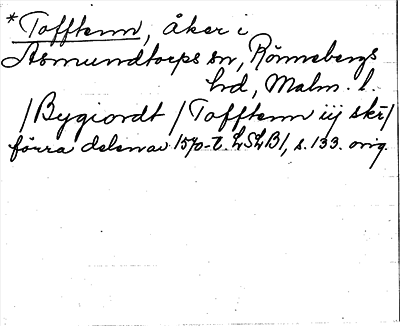 *Tofftenn, åker i
Asmundtorps sn, Rönnebergs
hd, Malm. l.
/Bygiordt/Tofftenn iij skr/
förra delen av 1570-t. LSLB1, s. 133. orig.